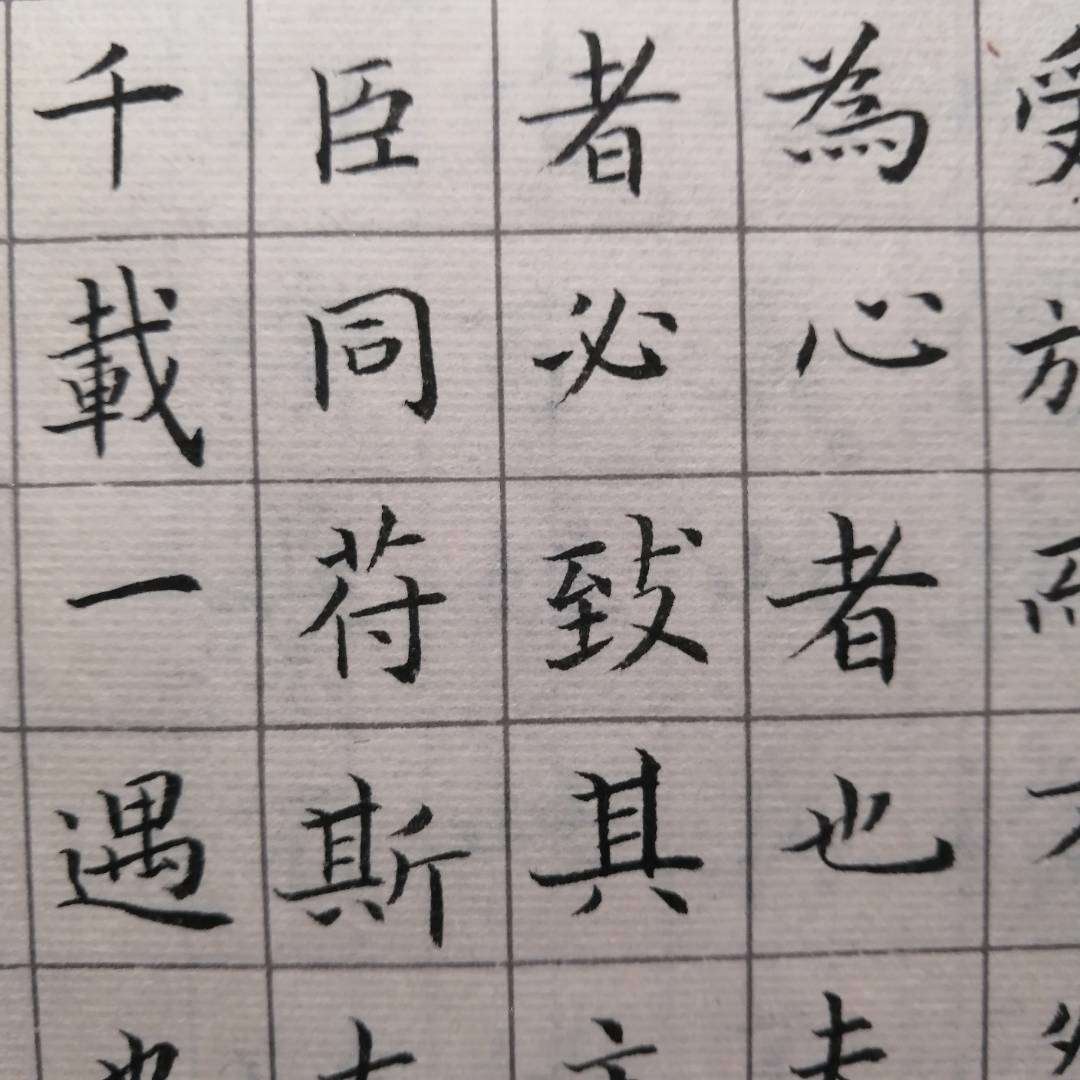 為心者也
者必致其
臣同苻斯
千載一遇